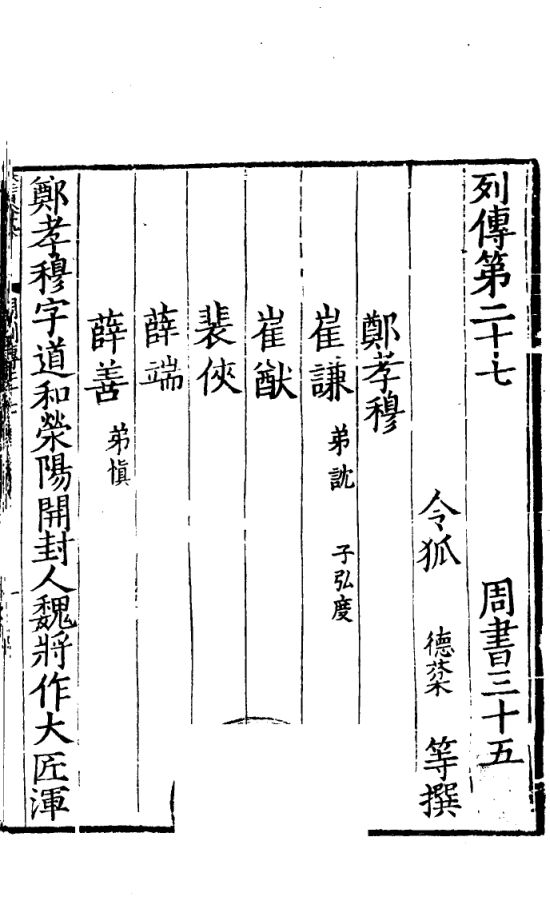 列傳第二十七 周書三十五
令狐 德棻 等撰
鄭孝穆
崔謙 弟訦 子弘度
崔猷
裴俠
薛端
薛善 弟慎
鄭孝穆字道和滎陽開封人魏將作大匠渾